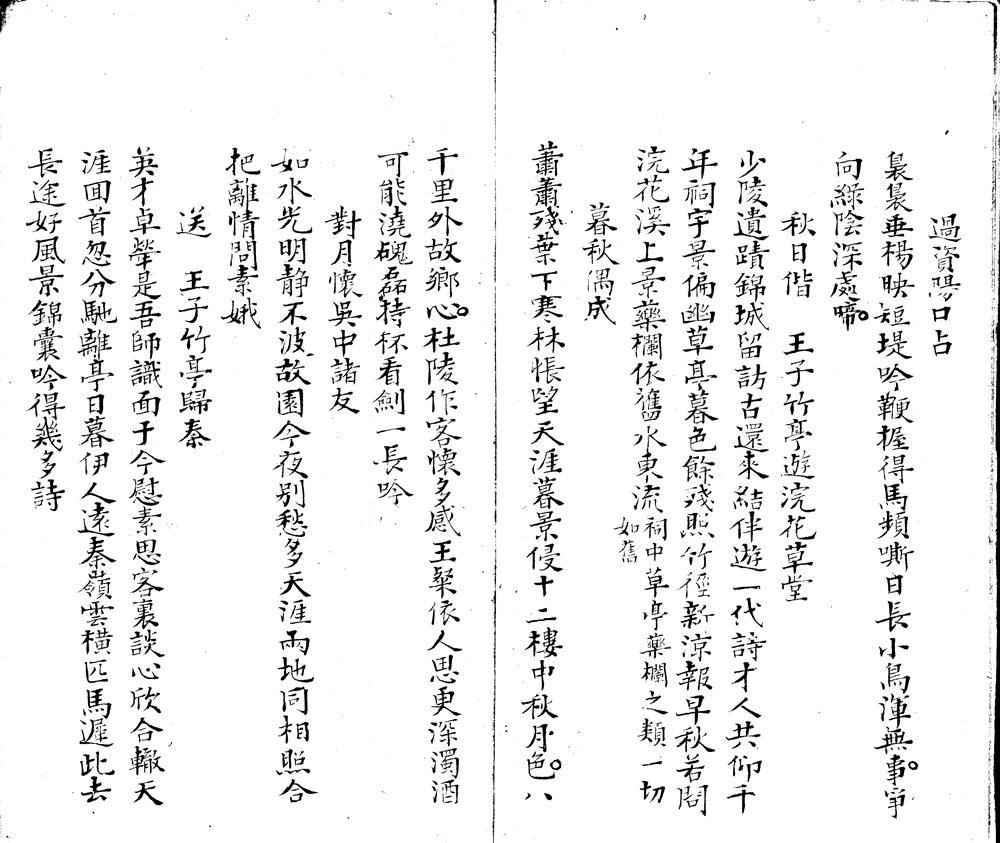 過資陽口占
裊裊垂楊映短堤吟鞭握得馬頻嘶日長小鳥渾無事爭
向綠陰深處啼
秋日偕　王子竹亭遊浣花草堂
少陵遺蹟錦城留訪古還來結伴遊一代詩才人共仰千
年祠宇景偏幽草亭暮色餘殘照竹徑新涼報早秋若問
浣花溪上景藥欄依舊水東流祠中草亭藥欄之類一切
如舊
暮秋偶成
蕭蕭殘葉下寒林悵望天涯暮景侵十二樓中秋月色八
千里外故鄉心杜陵作客懷多感王粲依人思更深濁酒
可能澆磈磊持杯看劍一長吟
對月懷吳中諸友
如水光明静不波故園今夜别愁多天涯兩地同相照合
把離情問素娥
送　王子竹亭歸秦
英才卓犖是吾師識面于今慰素思客裏談心欣合轍天
涯囬首忽分馳離亭日暮伊人遠秦嶺雲橫匹馬遲此去
長途好風景錦囊吟得幾多詩